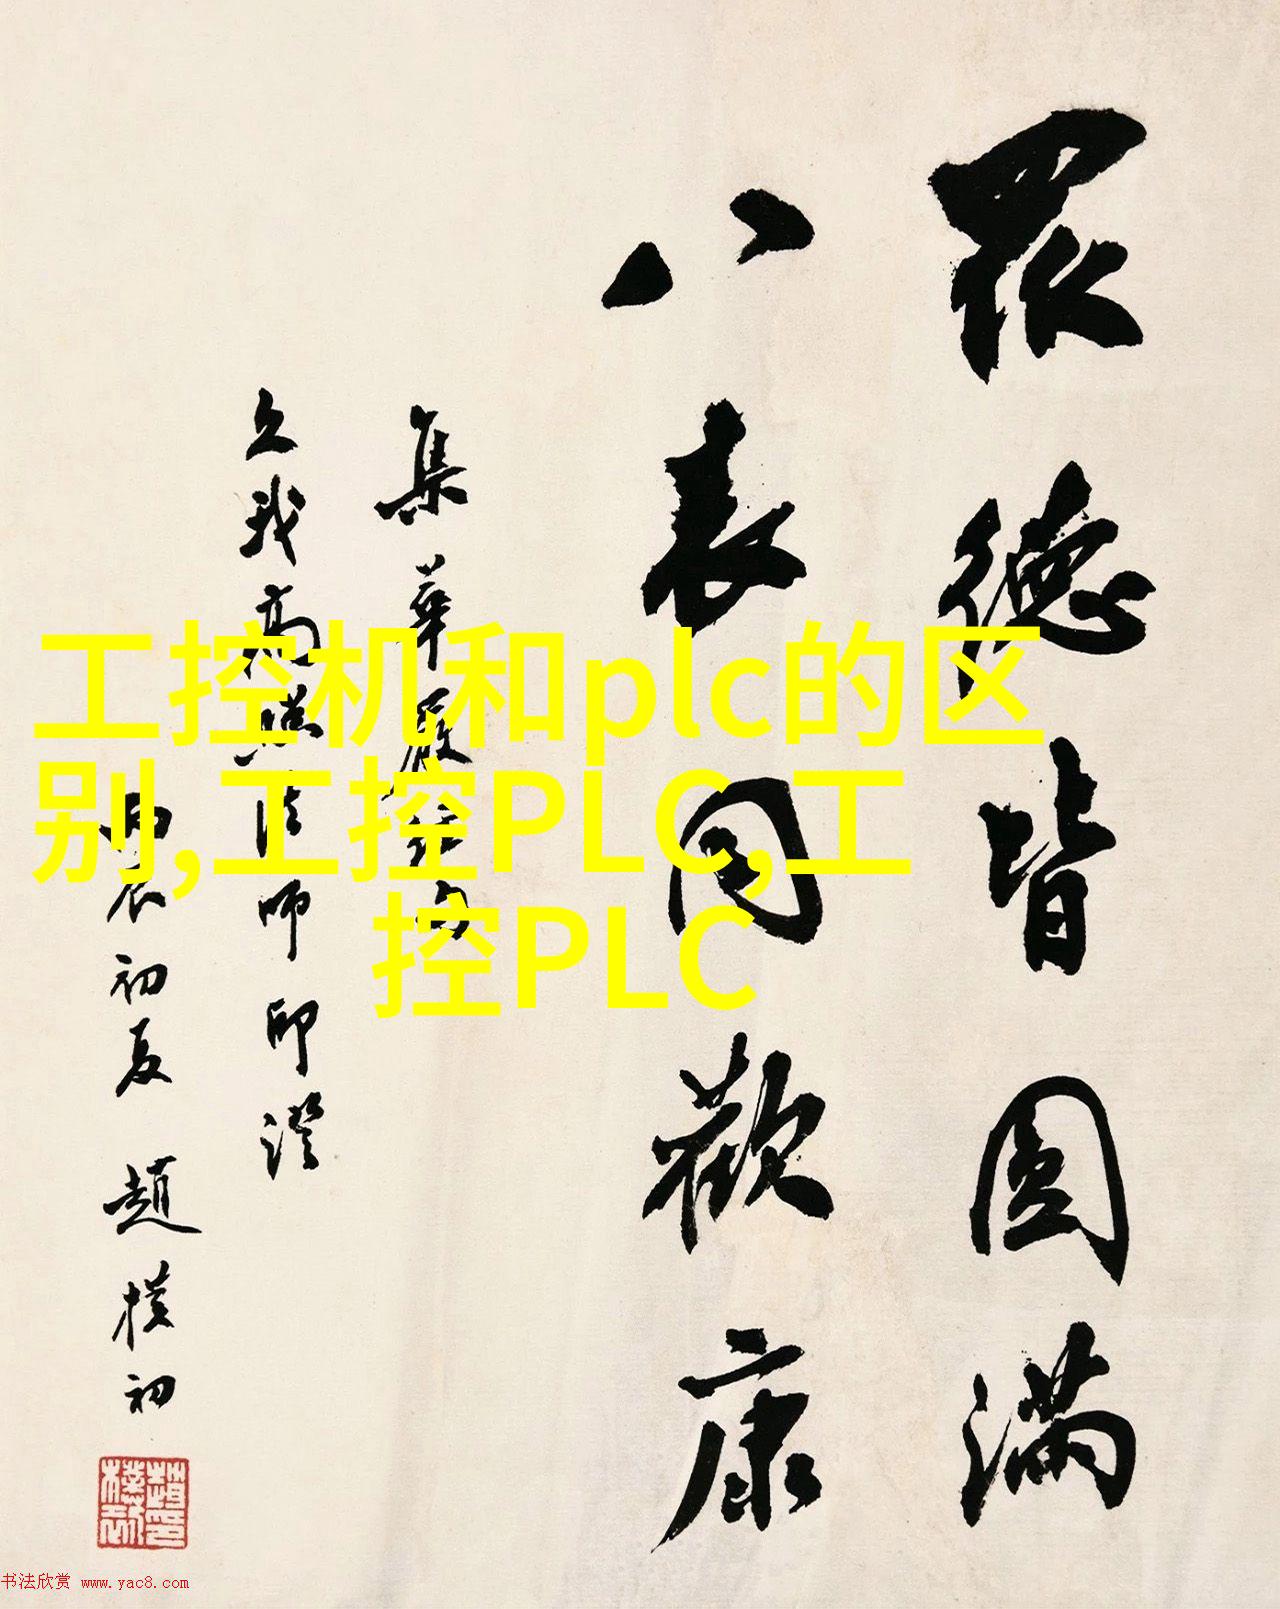 眾德皆圓滿
八表同歡康
集華嚴經句
久我高照法師印證
丙辰初夏 趙樸初
工控机和plc的区
别,工控PLC,工
控PLC
书法欣赏 www.yac8.com